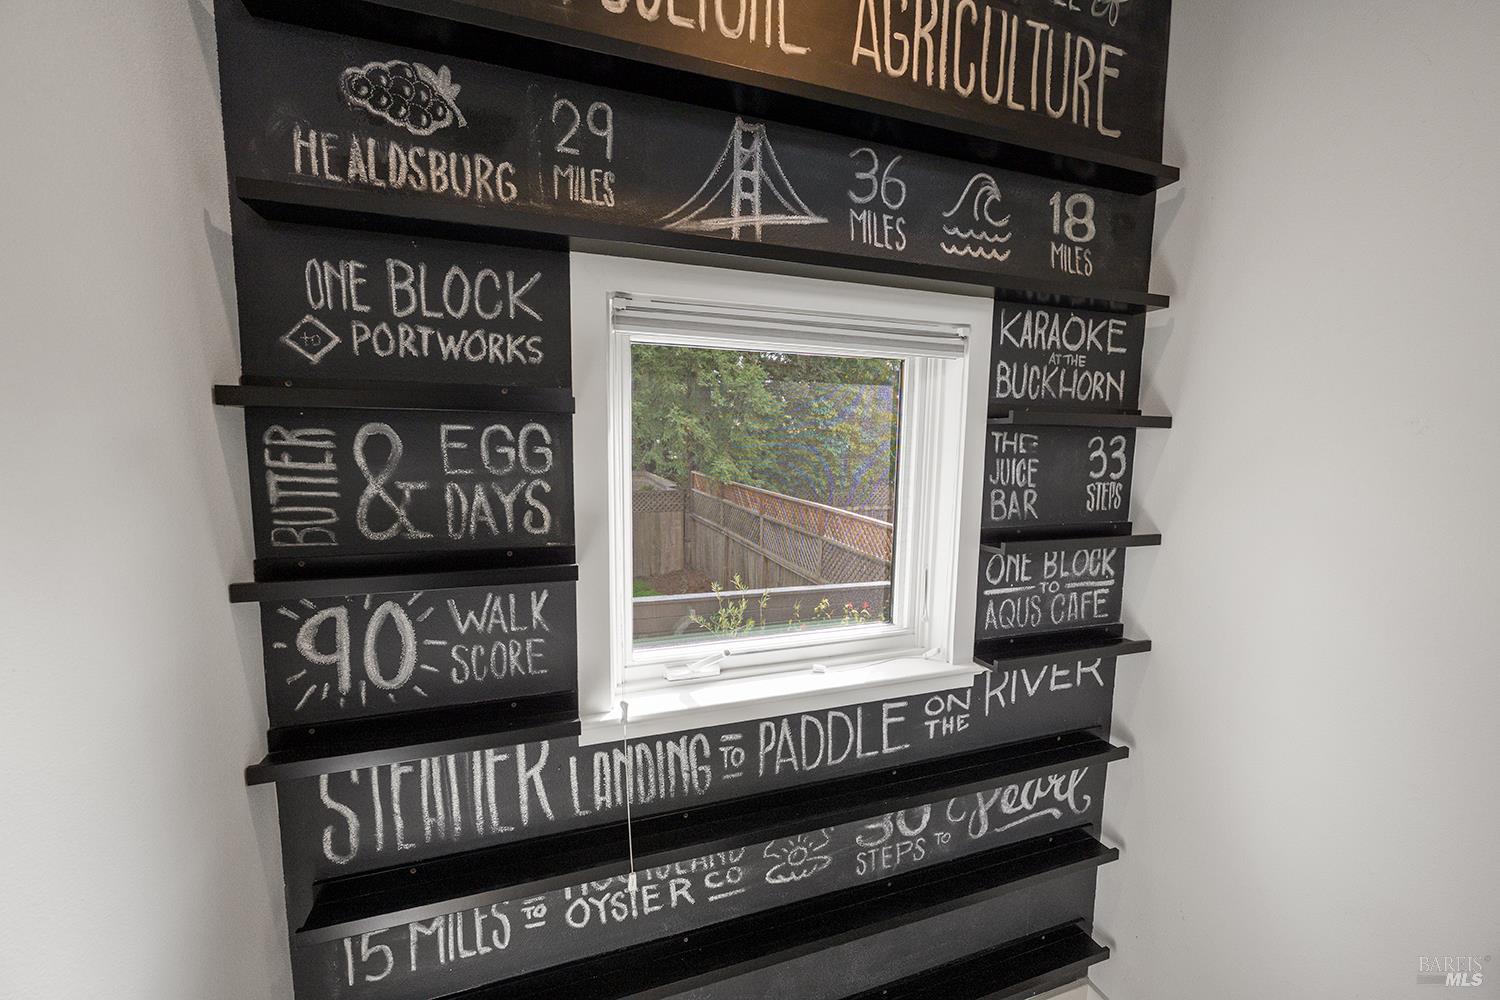 AGRICULTURE
HEALDSBURG
29
MILES
36
MILES
18
MILES
ONE BLOCK
to PORTWORKS
KARAOKE
AT THE
BUCKHORN
BUTTER & EGG
DAYS
THE
JUICE
BAR
33
STEPS
ONE BLOCK
TO
AQUS CAFE
90 WALK
SCORE
STEAMER LANDING TO PADDLE ON THE RIVER
30
STEPS TO Pearl
15 MILES TO HOG ISLAND
OYSTER CO
BAREIS
MLS